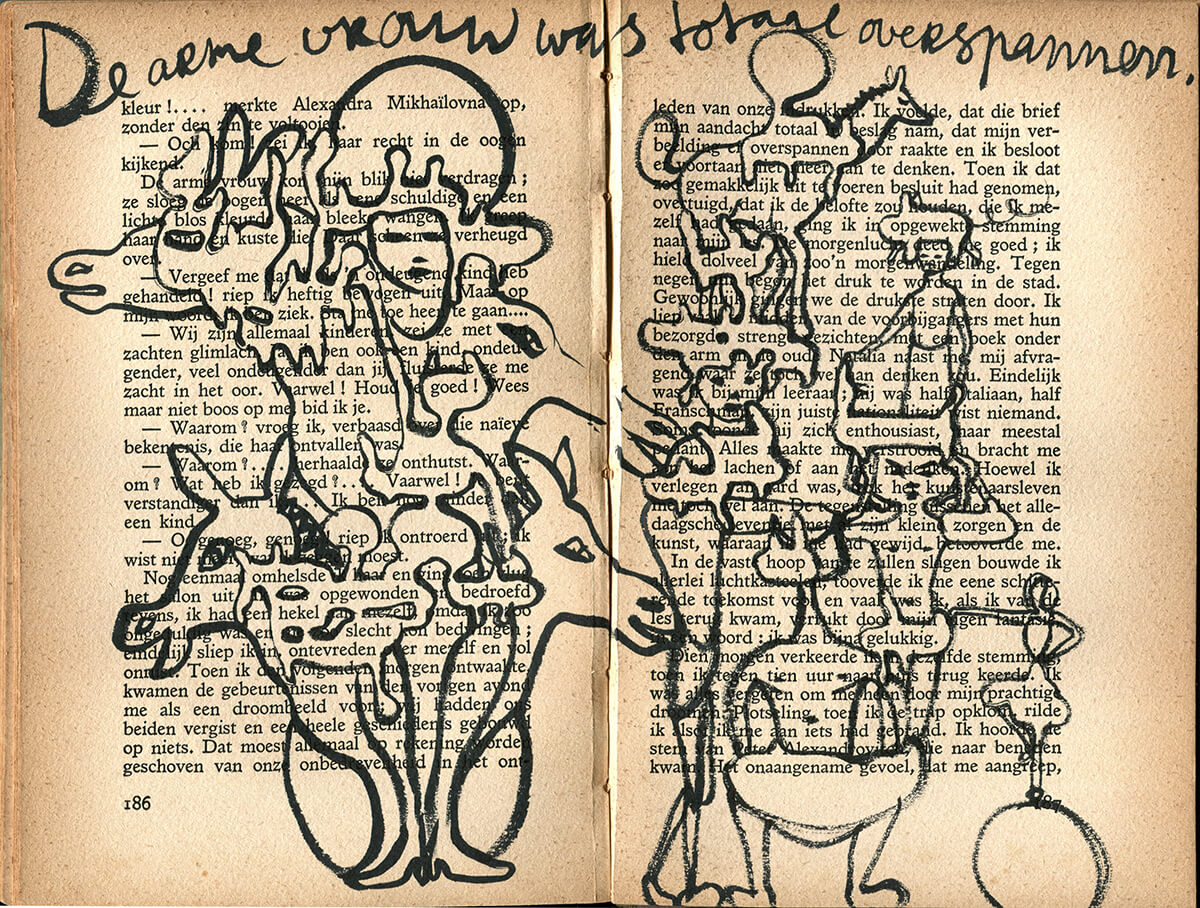 De arme vrouw was totaal overspannen.
kleur !.... merkte Alexandra Mikhaïlovna op,
zonder den zin te voltooien.
— Och kom! zei ik, haar recht in de oogen
kijkend.
De arme vrouw kon mijn blik niet verdragen ;
ze sloeg de oogen neer als een schuldige en een
licht blos kleurde haar bleeke wangen. Ik greep
haar hand en kuste die. verheugd
over.
— Vergeef me dat ik als 'n ondeugend kind heb
gehandeld! riep ik heftig bewogen uit. Maar op
mijn woord ik ben ziek. Sta me toe heen te gaan....
— Wij zijn allemaal kinderen, zei ze met een
zachten glimlach, ik ben ook een kind, ondeu-
gender, veel ondeugender dan jij, fluisterde ze me
zacht in het oor. Vaarwel! Houd je goed! Wees
maar niet boos op me, bid ik je.
— Waarom? vroeg ik, verbaasd over die naïeve
bekentenis, die haar ontvallen was.
— Waarom?... herhaalde ze onthutst. Waar-
om? Wat heb ik gezegd?.... Vaarwel! Je bent
verstandiger dan ik... Ik ben nog minder dan
een kind.
— O, genoeg, genoeg, riep ik ontroerd uit; ik
wist niet
Nog eenmaal omhelsde ik haar en ging toen vlug
het salon uit. opgewonden en bedroefd
tevens, ik had een hekel aan mezelf, omdat ik zoo
onhandig was en slecht kon bedwingen ;
eindelijk sliep ik in, ontevreden over mezelf en vol
onrust. Toen ik den volgenden morgen ontwaakte,
kwamen de gebeurtenissen van den vorigen avond
me als een droombeeld voor; wij hadden ons
beiden vergist en een heele geschiedenis gebouwd
op niets. Dat moest allemaal op rekening worden
geschoven van onze onbedrevenheid in het ont-
186
leden van onze indrukken. Ik voelde, dat die brief
mijn aandacht totaal in beslag nam, dat mijn ver-
beelding er overspannen door raakte en ik besloot
er voortaan niet meer aan te denken. Toen ik dat
zoo gemakkelijk uit te voeren besluit had genomen,
overtuigd, dat ik de belofte zou houden, die ik me-
zelf had gedaan, ging ik in opgewekte stemming
naar mijn les. De morgenlucht deed me goed ; ik
hield dolveel van zoo'n morgenwandeling. Tegen
negen uur begon het druk te worden in de stad.
Gewoonlijk gingen we de drukste straten door. Ik
liep midden van de voorbijgangers met hun
bezorgde strenge gezichten, met een boek onder
den arm en de oude Natalia naast me, mij afvra-
gend waar ze toch wel aan denken zou. Eindelijk
was ik bij mijn leeraar ; hij was half Italiaan, half
Franschman, zijn juiste nationaliteit wist niemand.
Soms hij zich enthousiast, maar meestal
Alles maakte me verstrooid en bracht me
aan het lachen of aan het nadenken. Hoewel ik
verlegen van aard was, trok het kunstenaarsleven
me toch wel aan. De tegenstelling tusschen het alle-
daagsche leventje met al zijn kleine zorgen en de
kunst, waaraan ik me had gewijd, betooverde me.
In de vaste hoop van te zullen slagen bouwde ik
allerlei luchtkasteelen, tooverde ik me eene schitte-
rende toekomst voor en vaak was ik, als ik van de
les terug kwam, verrukt door mijn eigen fantasie.
In een woord : ik was bijna gelukkig.
Dien morgen verkeerde ik in dezelfde stemming,
toen ik tegen tien uur naar huis terug keerde. Ik
was alles vergeten om me heen door mijn prachtige
droomen. Plotseling, toen ik de trap opklom, rilde
ik alsof ik me aan iets had gebrand. Ik hoorde de
stem van Peter Alexandrovitch, die naar beneden
kwam. Het onaangename gevoel, dat me aangreep,
187